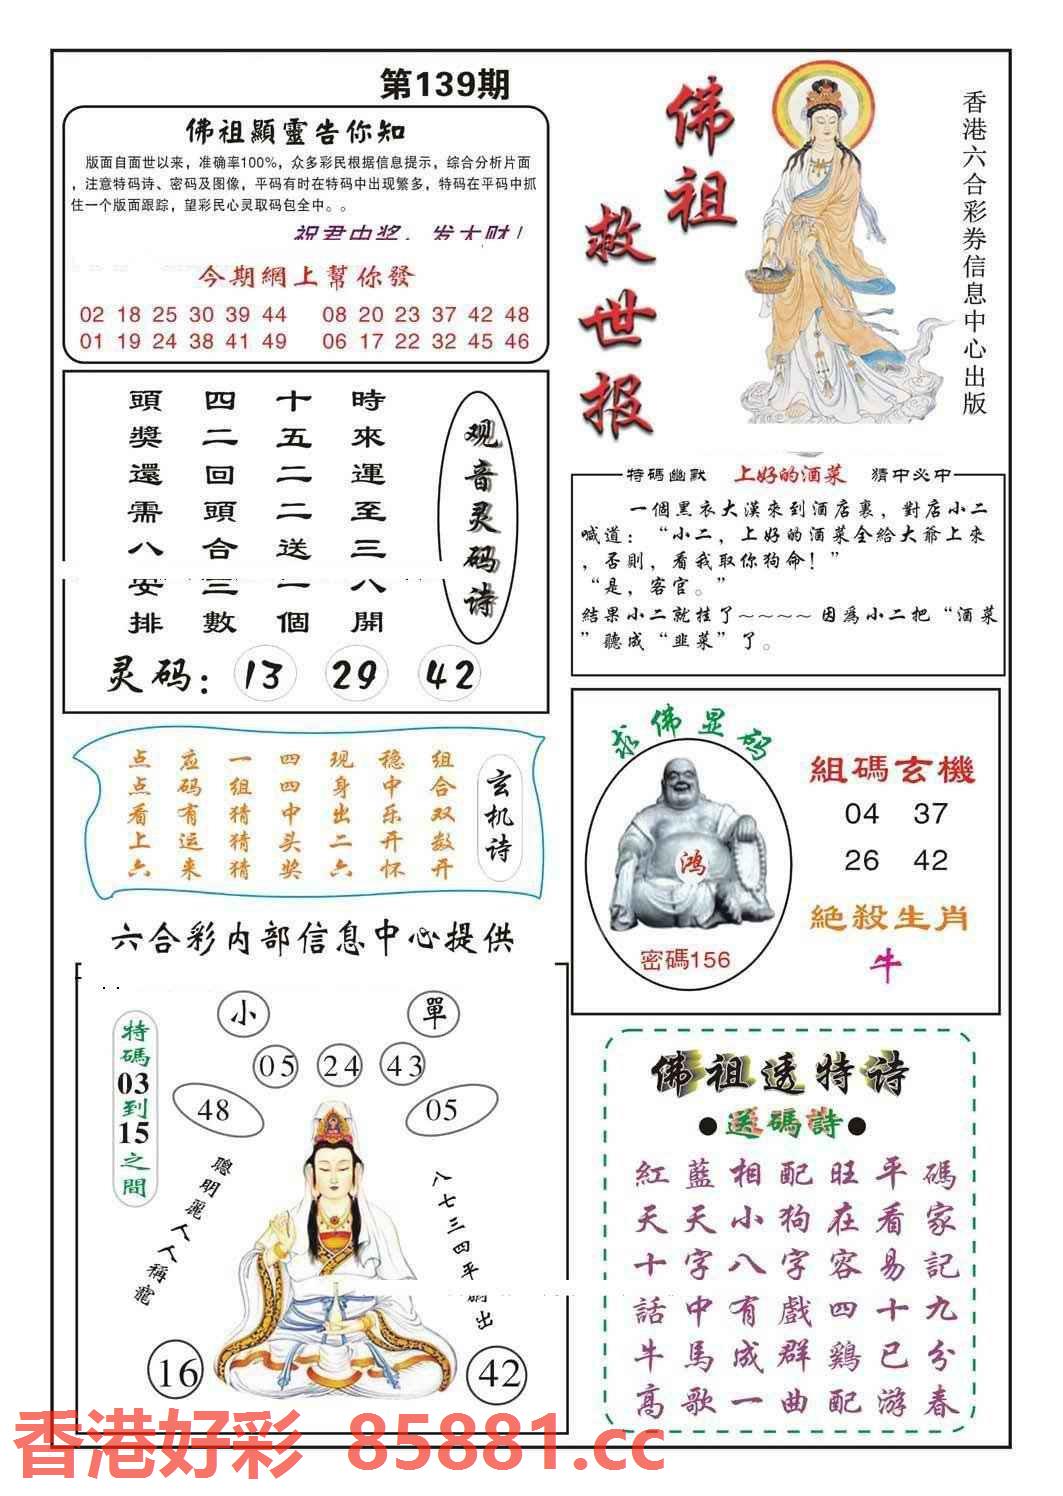 第139期
佛祖顯靈告你知
版面自面世以来，准确率100%，众多彩民根据信息提示，综合分析片面
，注意特码诗、密码及图像，平码有时在特码中出现繁多，特码在平码中抓
住一个版面跟踪，望彩民心灵取码包全中。。
祝君中奖，发大财！
今期網上幫你發
02 18 25 30 39 44 08 20 23 37 42 48
01 19 24 38 41 49 06 17 22 32 45 46
佛祖
救世报
香港六合彩券信息中心出版
观音灵码诗
時來運至三八開
十五二二送一個
四二回頭合三數
頭獎還需八安排
灵码：13 29 42
特碼幽默 上好的酒菜 猜中必中
一個黑衣大漢來到酒店裏，對店小二
喊道：“小二，上好的酒菜全給大爺上來
，否則，看我取你狗命！”
“是，客官。”
結果小二就挂了~~~~因爲小二把“酒菜
”聽成“韭菜”了。
玄机诗
组合双数开
稳中乐开怀
现身出二六
四四中头奖
一组猜猜猜
应码有运来
点点看上六
求佛显码
鸿
密碼156
組碼玄機
04 37
26 42
絕殺生肖
牛
六合彩内部信息中心提供
特碼03到15之間
小 單
05 24 43
48 05
聰明麗人人稱寵
八七三四平
出
16 42
佛祖透特诗
●送碼詩●
紅藍相配旺平碼
天天小狗在看家
十字八字容易記
話中有戲四十九
牛馬成群鷄已分
高歌一曲配游春
香港好彩 85881.cc